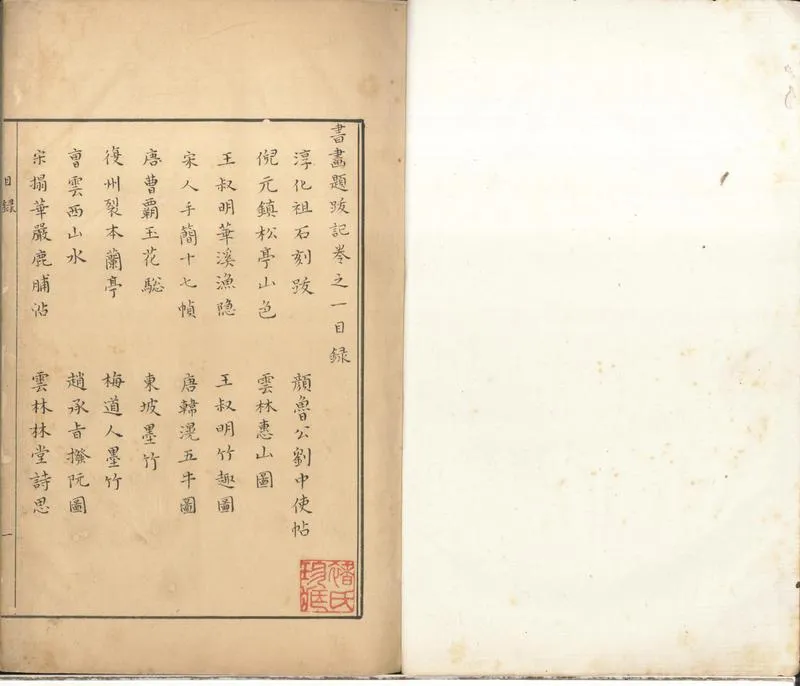 書畫題跋記卷之一目録
淳化祖石刻跋　顔魯公劉中使帖
倪元鎮松亭山色　雲林惠山圖
王叔明華溪漁隐　王叔明竹趣圖
宋人手簡十七幀　唐韓滉五牛圖
唐曹霸玉花騘　東坡墨竹
復州裂本蘭亭　梅道人墨竹
曹雲西山水　趙承旨撥阮圖
宋搨華嚴鹿脯帖　雲林林堂詩思
目録　一